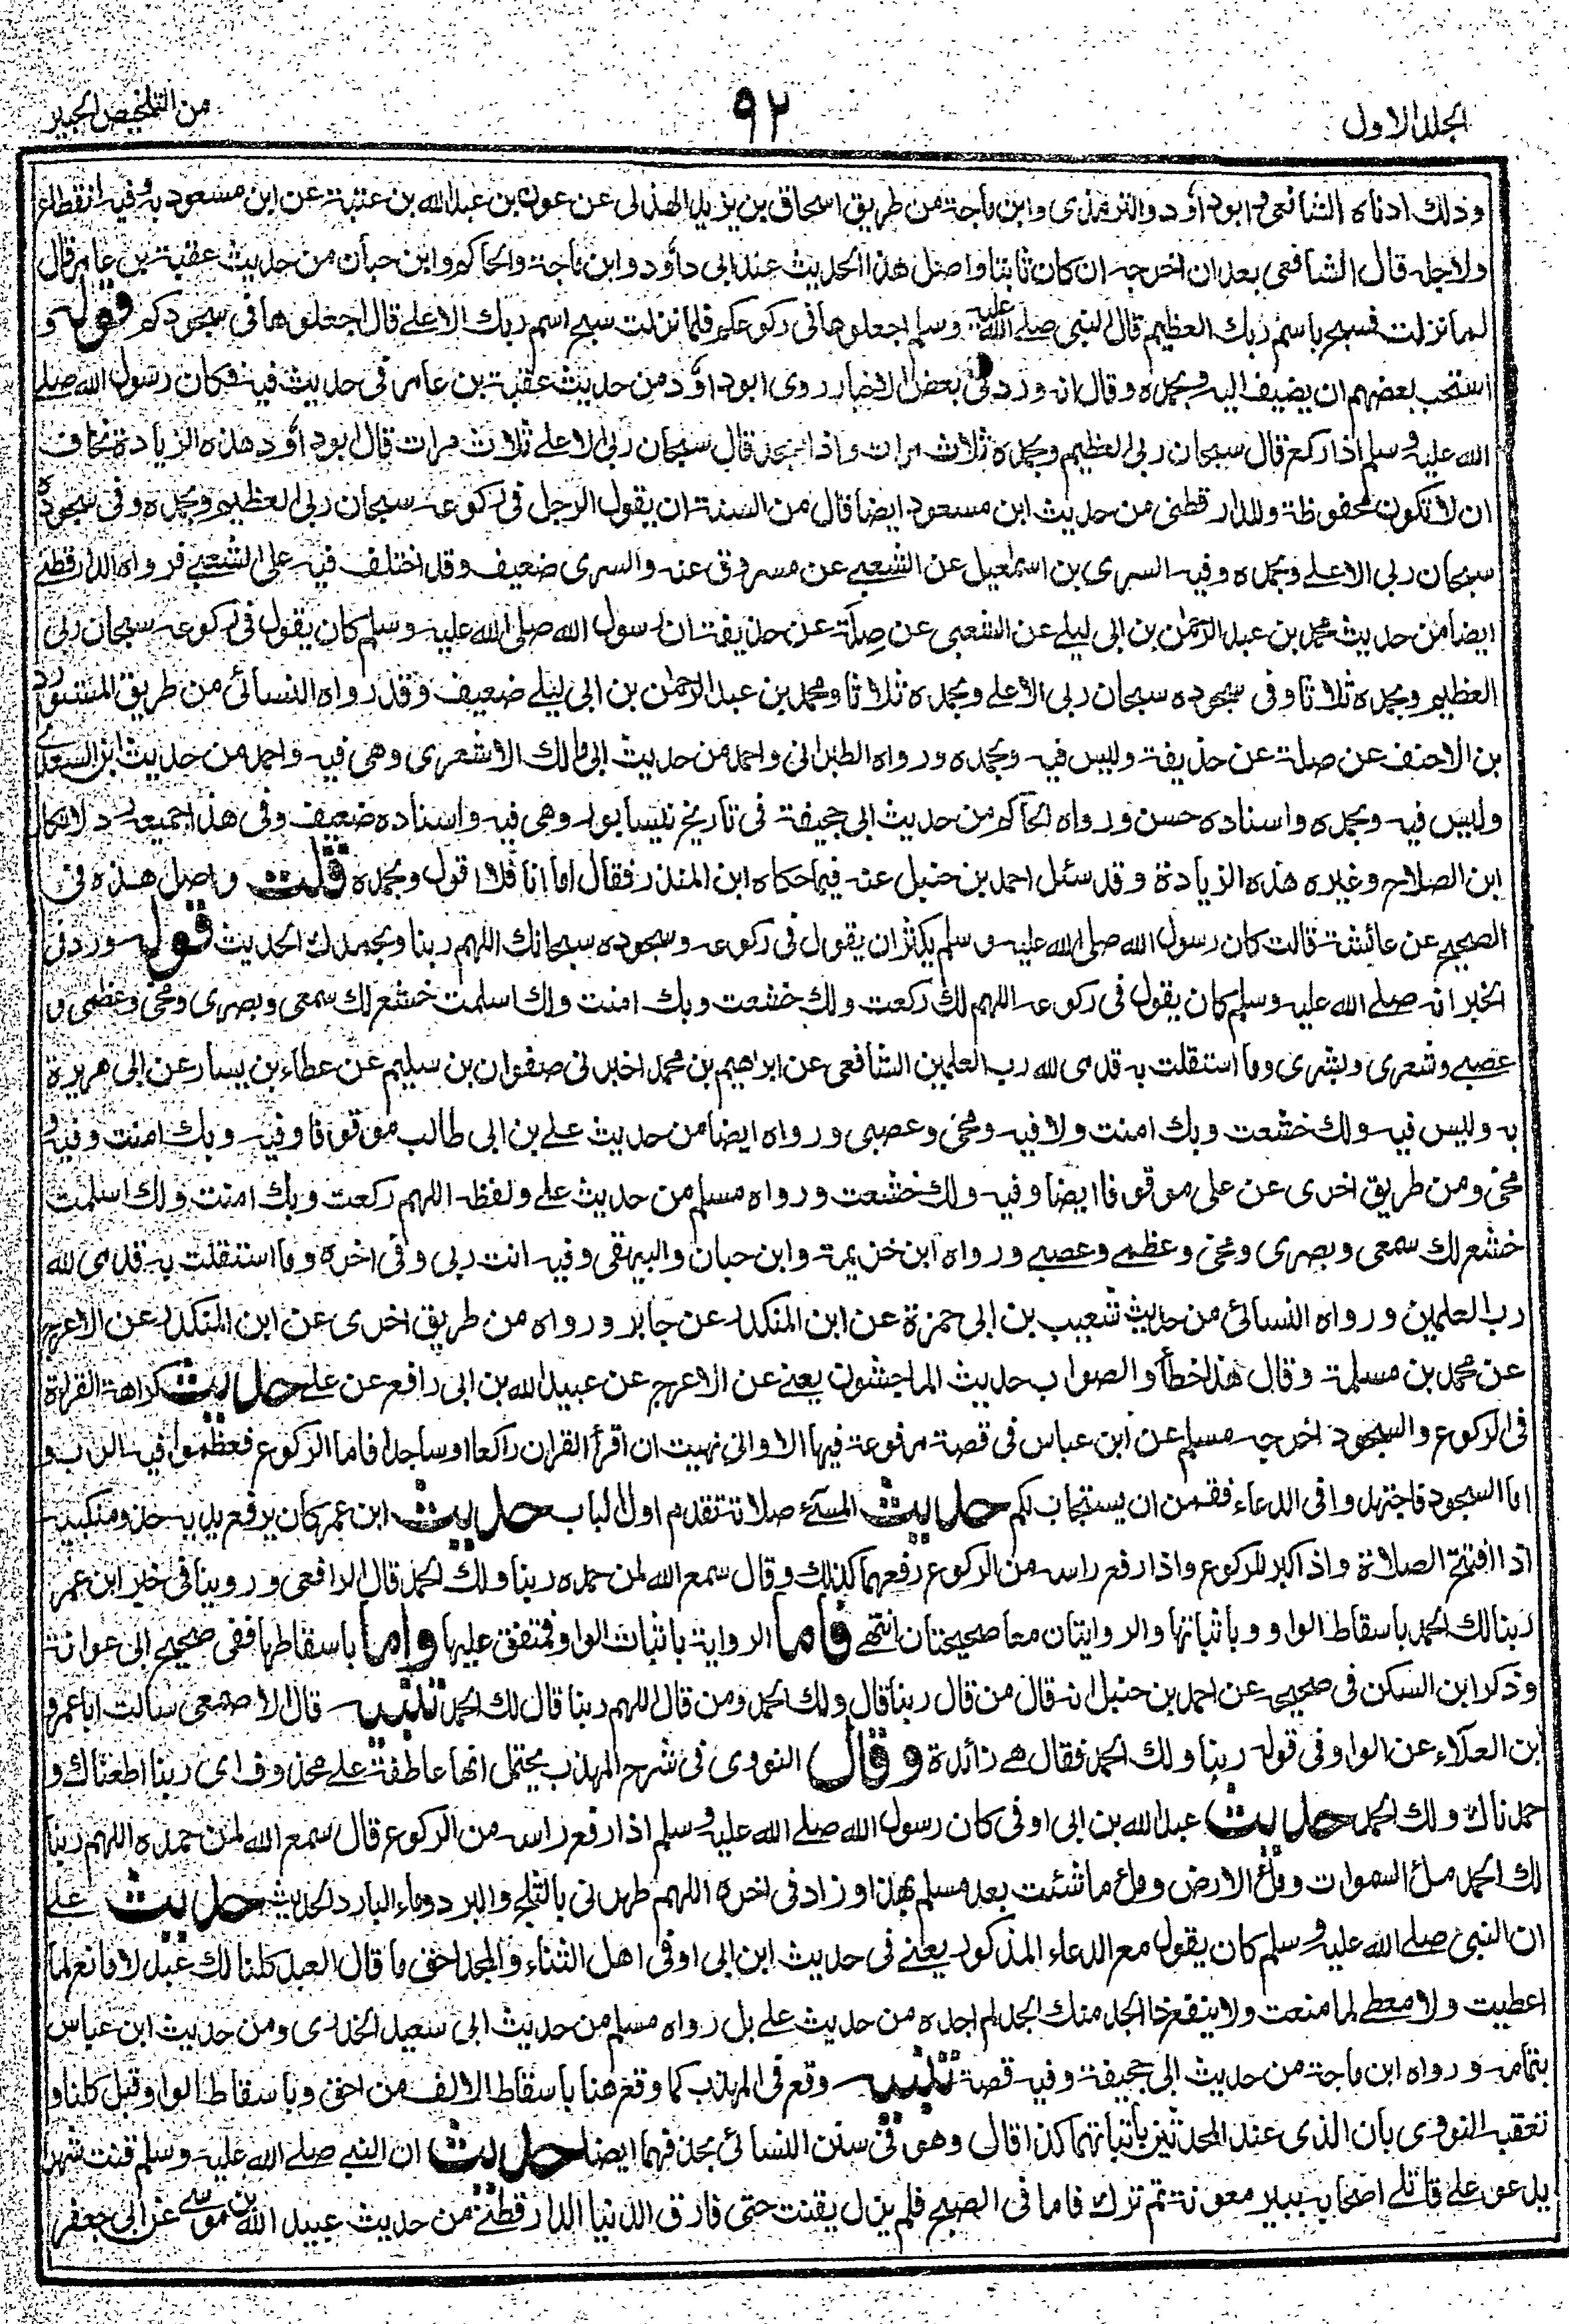 الجلد الاول
٩٢
من التلخيص الحبير
وذلك ادناه الشافعی وابوداؤد والترمذی وابن ماجة من طريق اسحاق بن يزيد الهذلی عن عون بن عبد الله بن عتبة عن ابن مسعود به وفيه انقطاع
ولاجله قال الشافعی بعد ان اخرجه ان كان ثابتا واصل هذا الحديث عند ابی داؤد وابن ماجة والحاكم وابن حبان من حديث عقبة بن عامر قال
لما نزلت فسبح باسم ربك العظيم قال النبی صلے الله عليه وسلم اجعلوها فی ركوعكم فلما نزلت سبح اسم ربك الاعلے قال اجعلوها فی سجودكم قوله و
استحب بعضهم ان يضيف اليه وبحمده وقال انه ورد فی بعض الاخبار روى ابوداؤد من حديث عقبة بن عامر فی حديث فيه فكان رسول الله صلے
الله عليه وسلم اذا ركع قال سبحان ربی العظيم وبحمده ثلاث مرات واذا سجد قال سبحان ربی الاعلے ثلاث مرات قال ابوداؤد هذه الزيادة نخاف
ان لا تكون محفوظة وللدارقطنی من حديث ابن مسعود ايضا قال من السنة ان يقول الرجل فی ركوعه سبحان ربی العظيم وبحمده وفی سجوده
سبحان ربی الاعلے وبحمده وفيه السری بن اسمعيل عن الشعبے عن مسروق عنه والسری ضعيف وقد اختلف فيه علی الشعبے فرواه الدارقطنے
ايضا من حديث محمد بن عبد الرحمن بن ابی ليلے عن الشعبی عن صلة عن حذيفة ان رسول الله صلی الله عليه وسلم كان يقول فی ركوعه سبحان ربی
العظيم وبحمده ثلاثا وفی سجوده سبحان ربی الاعلے وبحمده ثلاثا ومحمد بن عبد الرحمن بن ابی ليلے ضعيف وقد رواه النسائی من طريق المستورد
بن الاحنف عن صلة عن حذيفة وليس فيه وبحمده ورواه الطبرانی واحمد من حديث ابی مالك الاشعری وهی فيه واحمد من حديث ابن السعدے
وليس فيه وبحمده واسناده حسن ورواه الحاكم من حديث ابی جحيفة فی تاريخ نيسابور وهی فيه واسناده ضعيف وفی هذا جميعه رد لانكار
ابن الصلاح وغيره هذه الزيادة وقد سئل احمد بن حنبل عنه فيما حكاه ابن المنذر فقال اما انا فلا اقول وبحمده قلت واصل هذه فی
الصحيح عن عائشة قالت كان رسول الله صلی الله عليه وسلم يكثر ان يقول فی ركوعه وسجوده سبحانك اللهم ربنا وبحمدك الحديث قوله ورد فی
الخبر انه صلے الله عليه وسلم كان يقول فی ركوعه اللهم لك ركعت ولك خشعت وبك امنت ولك اسلمت خشع لك سمعی وبصری ومخی وعظمی و
عصبے وشعری وبشری وما استقلت به قدمی لله رب العلمين الشافعی عن ابراهيم بن محمد اخبرنی صفوان بن سليم عن عطاء بن يسار عن ابی هريرة
به وليس فيه ولك خشعت وبك امنت ولا فيه ومخی وعصبی ورواه ايضا من حديث علے بن ابی طالب موقوفا وفيه وبك امنت وفيه و
مخی ومن طريق اخری عن علی موقوفا ايضا وفيه ولك خشعت ورواه مسلم من حديث علے ولفظه اللهم ركعت وبك امنت ولك اسلمت
خشع لك سمعی وبصری ومخی وعظمے وعصبے ورواه ابن خزيمة وابن حبان والبيهقی وفيه انت ربی وفی اخره وما استقلت به قدمی لله
رب العلمين ورواه النسائی من حديث شعيب بن ابی حمزة عن ابن المنكدر عن جابر ورواه من طريق اخری عن ابن المنكدر عن الاعرج
عن محمد بن مسلمة وقال هذا خطأ والصواب حديث الماجشون يعنے عن الاعرج عن عبيد الله بن ابی رافع عن علے حديث كراهة القراءة
فی الركوع والسجود اخرجه مسلم عن ابن عباس فی قصة مرفوعة فيها الا وانی نهيت ان اقرأ القران راكعا او ساجدا فاما الركوع فعظموا فيه الرب و
اما السجود فاجتهدوا فی الدعاء فقمن ان يستجاب لكم حديث المسئ صلاته تقدم اول الباب حديث ابن عمر كان يرفع يديه حذو منكبيه
اذا افتتح الصلاة واذا كبر للركوع واذا رفع راسه من الركوع رفعهما كذلك وقال سمع الله لمن حمده ربنا ولك الحمد قال الرافعی وروينا فی خبر ابن عمر
ربنا لك الحمد باسقاط الواو وباثباتها والروايتان معا صحيحتان انتهے فاما الرواية باثبات الواو فمتفق عليها واما باسقاطها ففی صحيح ابی عوانة
وذكر ابن السكن فی صحيحه عن احمد بن حنبل انه قال من قال ربنا قال ولك الحمد ومن قال اللهم ربنا قال لك الحمد تنبيه قال الاصمعی سالت ابا عمرو
بن العلاء عن الواو فی قوله ربنا ولك الحمد فقال هے زائدة وقال النووی فی شرح المهذب يحتمل انها عاطفة علے محذوف ای ربنا اطعناك و
حمدناك ولك الحمد حديث عبد الله بن ابی اوفی كان رسول الله صلے الله عليه وسلم اذا رفع راسه من الركوع قال سمع الله لمن حمده اللهم ربنا
لك الحمد ملئ السموات وملئ الارض وملئ ما شئت بعد مسلم بهذا وزاد فی اخره اللهم طهرنی بالثلج والبرد وماء البارد الحديث حديث علے
ان النبی صلے الله عليه وسلم كان يقول مع الدعاء المذكور يعنے فی حديث ابن ابی اوفی اهل الثناء والمجد احق ما قال العبد كلنا لك عبد لا مانع لما
اعطيت ولا معطے لما منعت ولا ينفع ذا الجد منك الجد لم اجده من حديث علے بل رواه مسلم من حديث ابی سعيد الخدری ومن حديث ابن عباس
بتمامه ورواه ابن ماجة من حديث ابی جحيفة وفيه قصة تنبيه وقع فی المهذب كما وقع هنا باسقاط الالف من احق وباسقاط الواو قبل كلنا و
تعقبه النووی بان الذی عند المحدثين باثباتهما كذا قال وهو فی سنن النسائی بحذفهما ايضا حديث ان النبے صلے الله عليه وسلم قنت شهرا
يدعو علے قاتلے اصحابه ببير معونة ثم ترك فاما فی الصبح فلم يزل يقنت حتی فارق الدنيا الدارقطنے من حديث عبيد الله بن موسے عن ابی جعفر